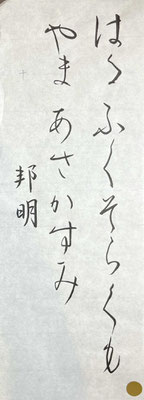 はるふくそらくも
やまあさかすみ
邦明